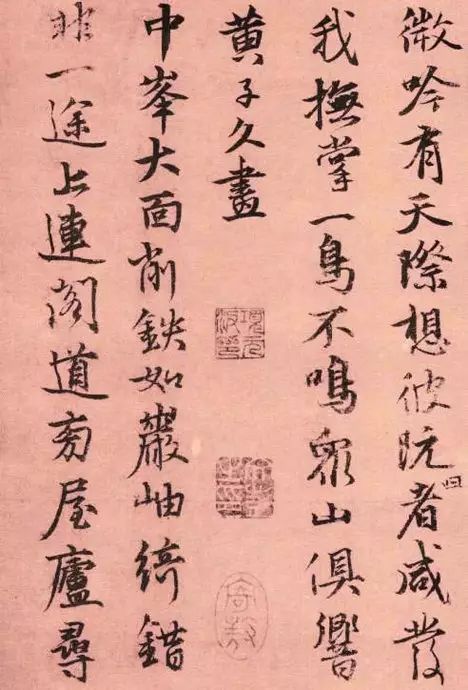 微吟有天際想彼阮者咸發
我撫掌一鳥不鳴眾山俱響
黃子久畫
中峯大面削鉄如巖岫綺錯
非一途上連閣道旁屋廬尋
項元汴印